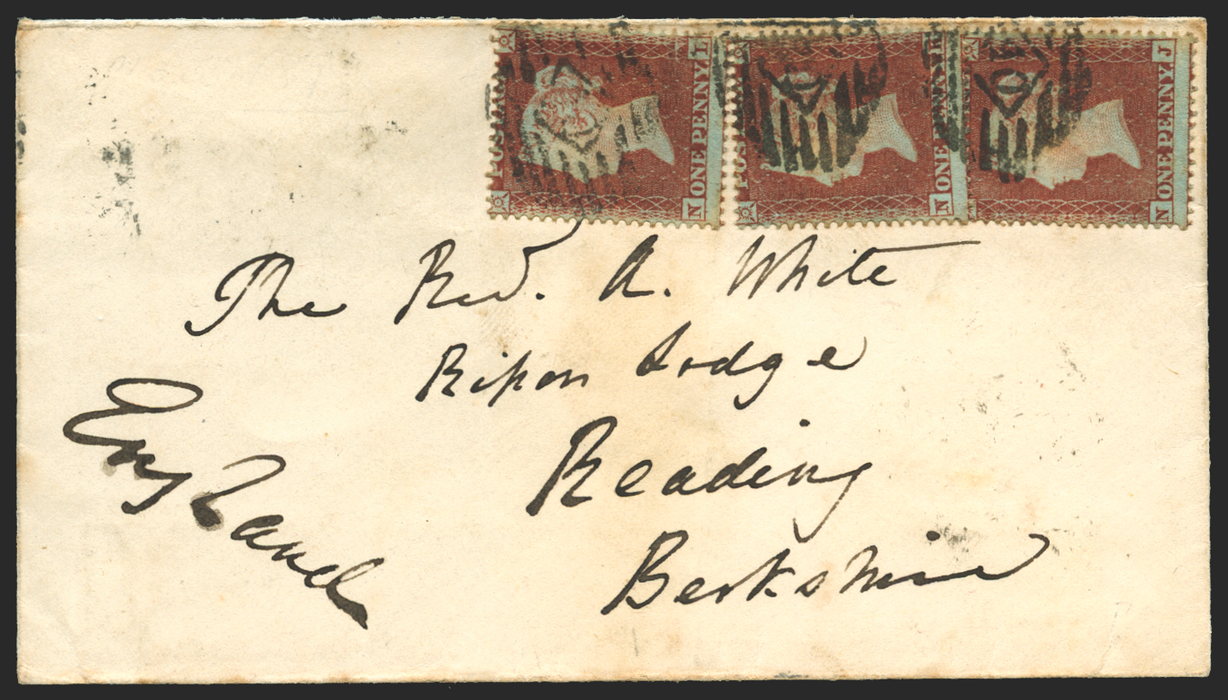 POSTAGE
ONE PENNY
N L
POSTAGE
ONE PENNY
N K
ONE PENNY
N J
The Revd. A. White
Ripon Lodge
Reading
Berkshire
England